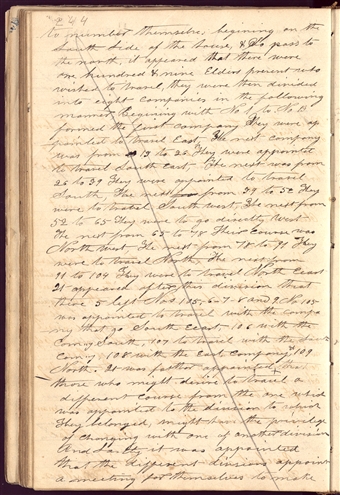 244
to number themselve, begining on the
South Side of the house, & to pass to
the north, it appeared that there were
one hundred & nine Elders present who
wished to travel, they were then divided
into eight Companies in the following
manner begining with No 1 to No 13
formed the first company They were ap
pointed to travel East. The next company
was from 13 to 26 They were appointed
to travel South east. The next was from
26 to 39 They were appointed to travel
South, The next was from 39 to 52 They
were to travel South west, The next from
52 to 65 They were to go directly West
The next from 65 to 78 Their Course was
North west. The next from 78 to 91 They
were to travel North. The next from
91 to 104 They were to travel North East
It appeared after this division that
there 5 left Nos 105, 6-7-8 and 9 No 105
was appointed to travel with the compa
ny that go South East. 106 with the
Comy South, 107 to travel with the
Comy 108 with the East Company 109
North. It was further appointed that
those who might desire to travel a
different Course from the one which
was appointed to the division to which
They belonged, might have the privilege
of changing with one of another division
And Lastly it was appointed
that the different divisions appoint
a meeting for themselves to make